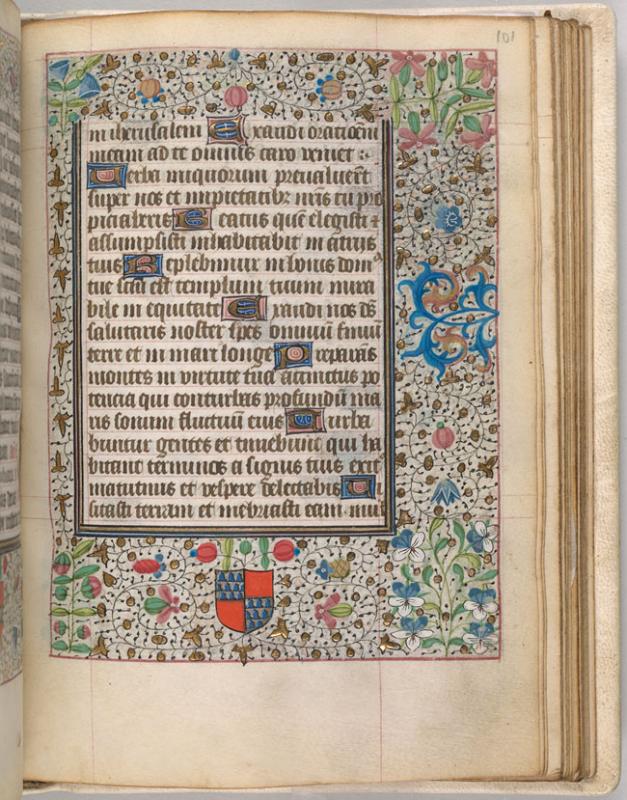 101
in iherusalem Exaudi orationem
meam ad te omnis caro veniet :
Verba iniquorum preualuer̄t
super nos et impietatibꝫ nr̄is tu pro
piciaberis Beatus quē elegisti ⁊
assumpsisti inhabitabit in atriis
tuis Replebimur in bonis dom9
tue scm̄ est templum tuum mira
bile in equitate Exaudi nos ds̄
salutaris noster spes omniū finiū
terre et in mari longe Preparās
montes in virtute tua accinctus po
tencia qui conturbas profundū ma
ris sonum fluctuū eius Turba
buntur gentes et timebunt qui ha
bitant terminos a signis tuis exit9
matutinus et vespere delectabis Ui
sitasti terram et inebriasti eam mul